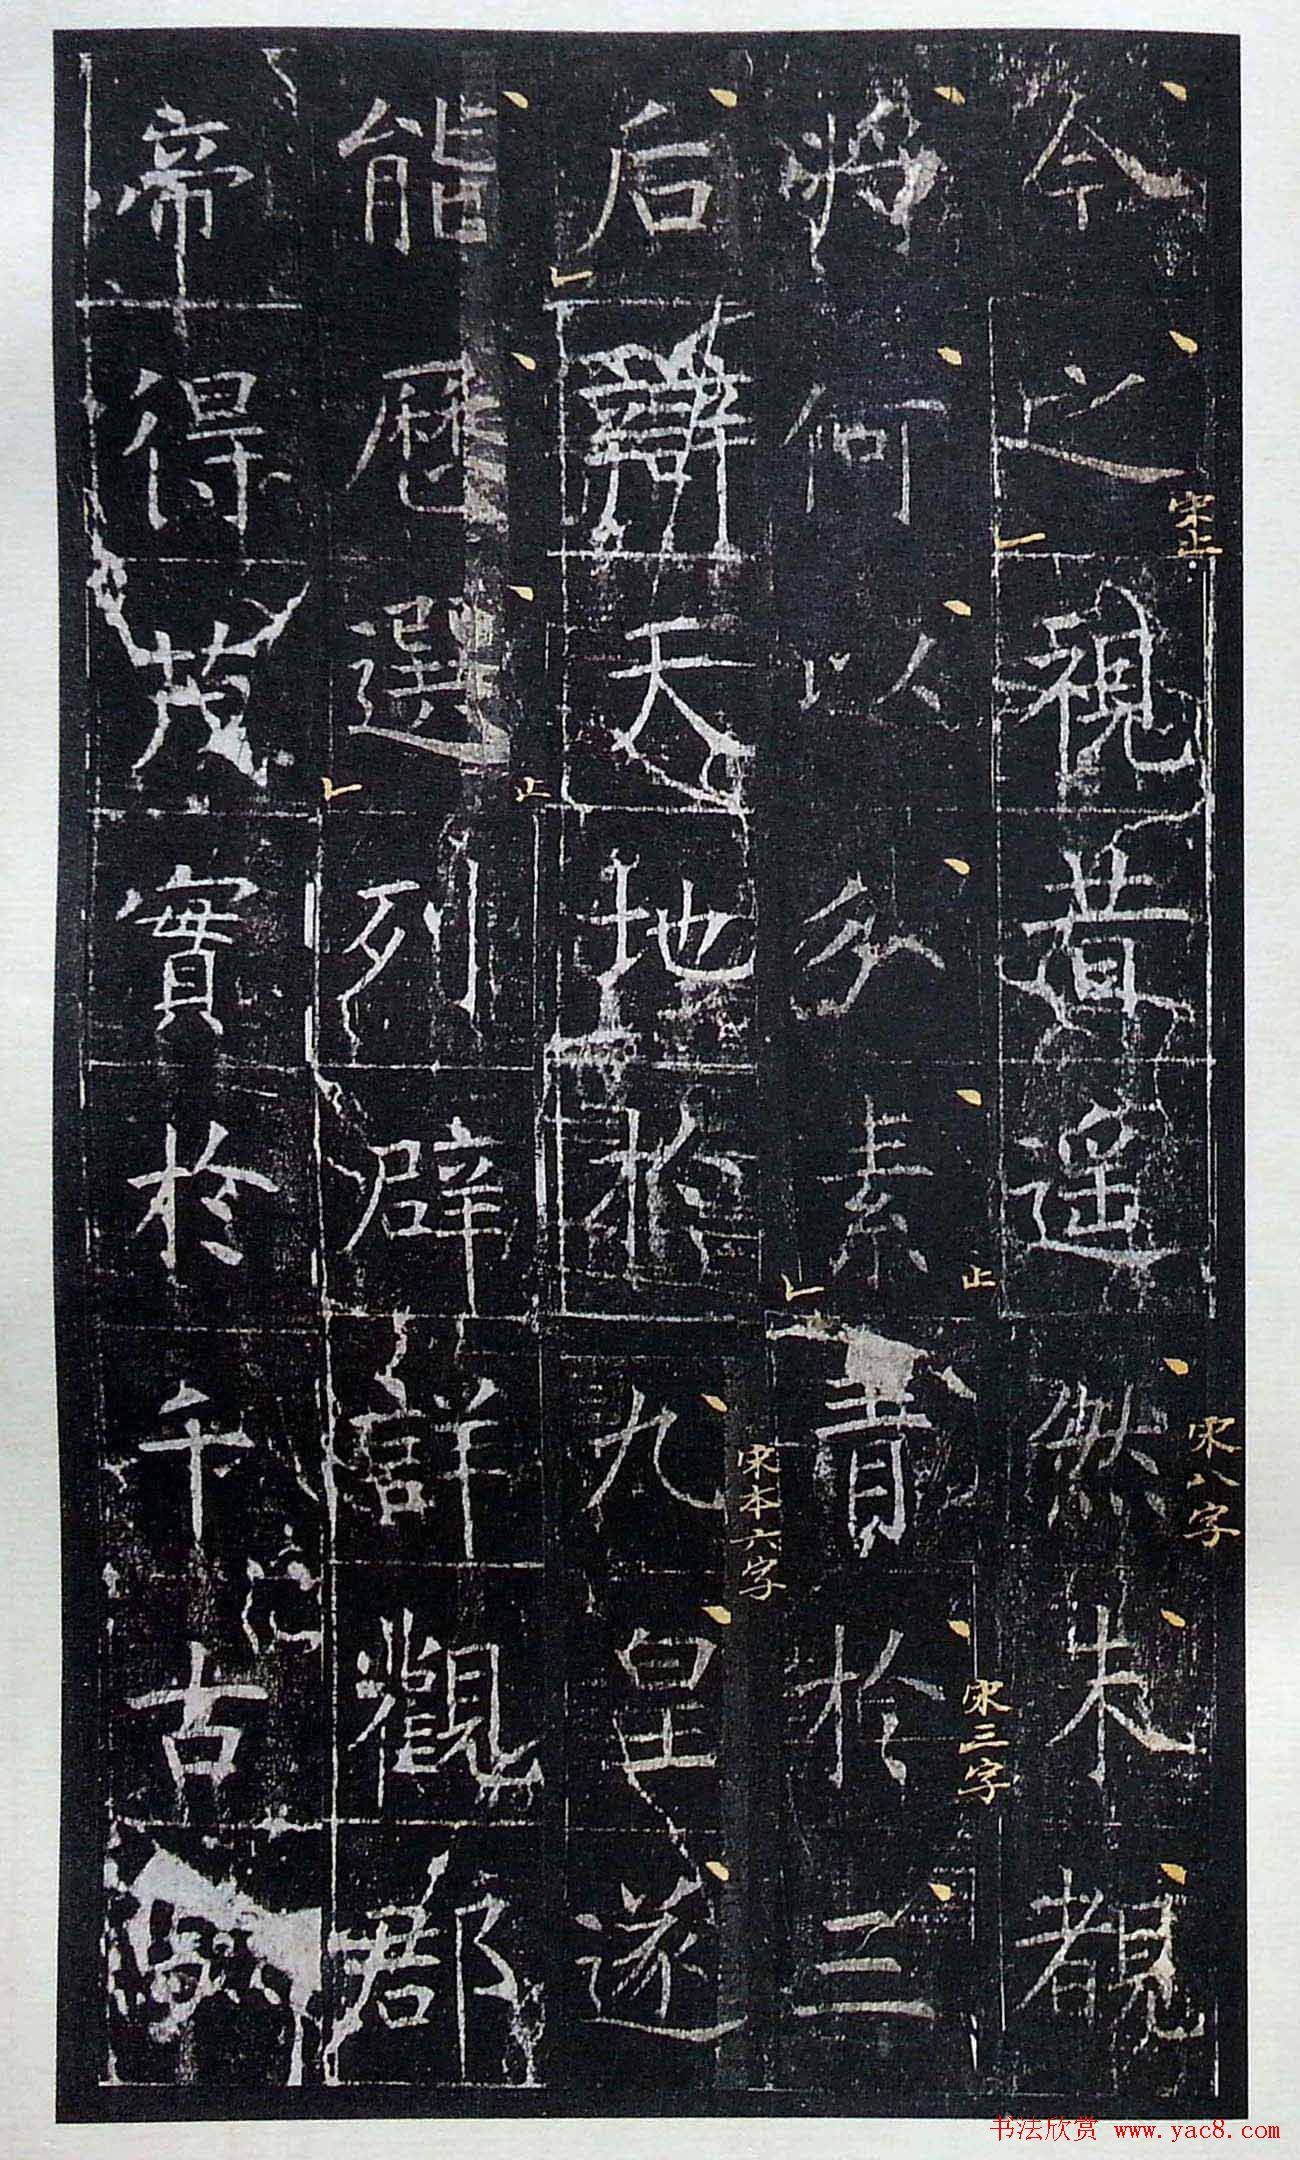 今之視昔遥然未覩
宋止
宋八字
將何以分素青於三
止
宋三字
后辯天地於九皇遂
宋本六字
能歷選列辟詳觀郡
止
帝得茂實於千古
书法欣赏 www.yac8.com